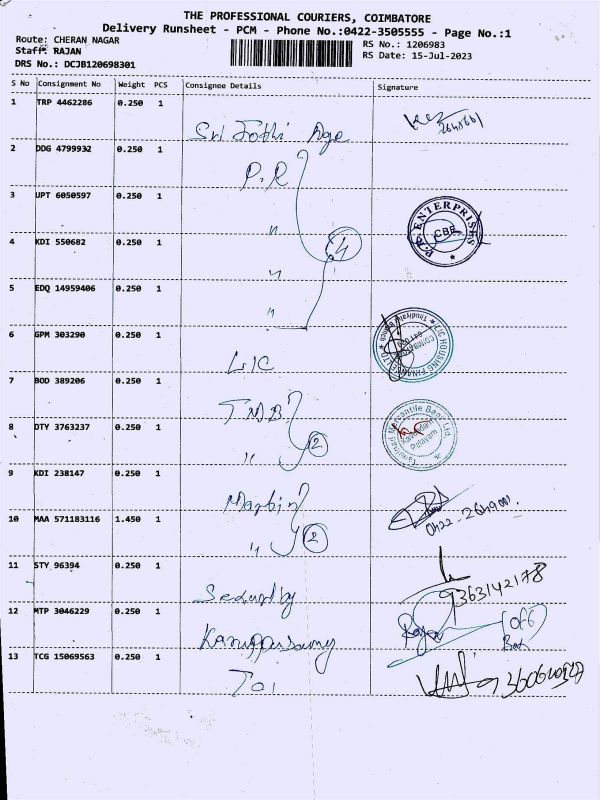 THE PROFESSIONAL COURIERS, COIMBATORE
Delivery Runsheet - PCM - Phone No.:0422-3505555 - Page No.:1
Route: CHERAN NAGAR
RS No.: 1206983
Staff: RAJAN
RS Date: 15-Jul-2023
DRS No.: DCJB120698301
S No Consignment No Weight PCS Consignee Details Signature
1 TRP 4462286 0.250 1
Sri Jothi Age
2 DDG 4799932 0.250 1
P.R
3 UPT 6050597 0.250 1
"
P.R ENTERPRISES
CBE
4 KDI 550682 0.250 1
4
"
5 EDQ 14959406 0.250 1
"
6 GPM 303290 0.250 1
LIC
LIC HOUSING FINANCE LTD
7 BOD 389206 0.250 1
TMB
Tamilnad Mercantile Bank Ltd.
Palayam
8 DTY 3763237 0.250 1
" 2
9 KDI 238147 0.250 1
Martin
10 MAA 571183116 1.450 1
" 2
11 STY 96394 0.250 1
Security
9363142178
12 MTP 3046229 0.250 1
Karuppusamy
13 TCG 15069563 0.250 1